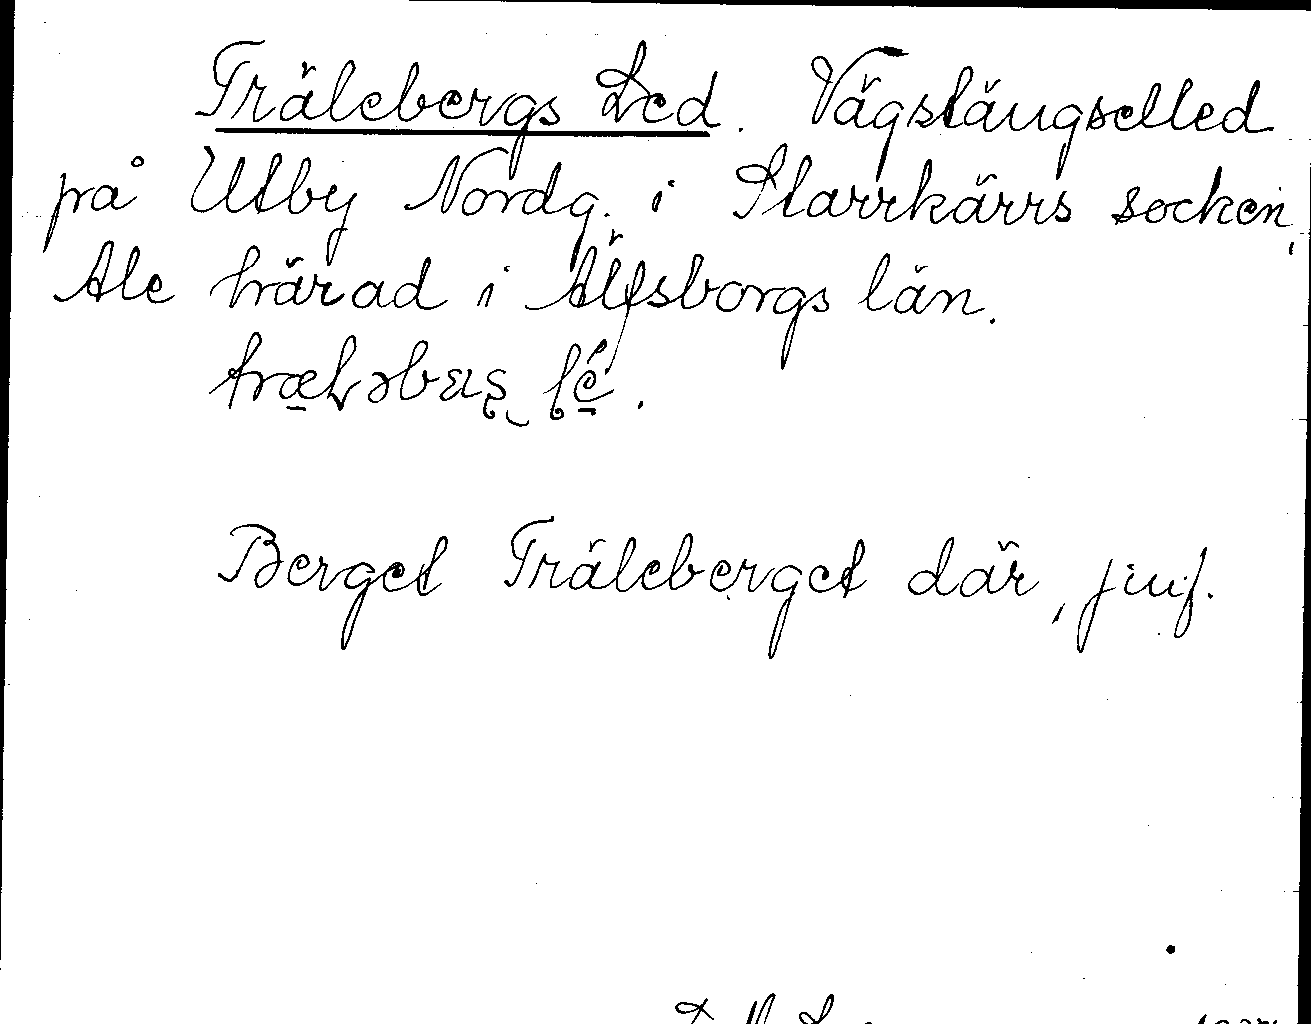 Trälebergs Led. Vägstängselled
på Utby Nordg. i Starrkärrs socken,
Ale härad i Älfsborgs län.
Berget Träleberget där, jmf.